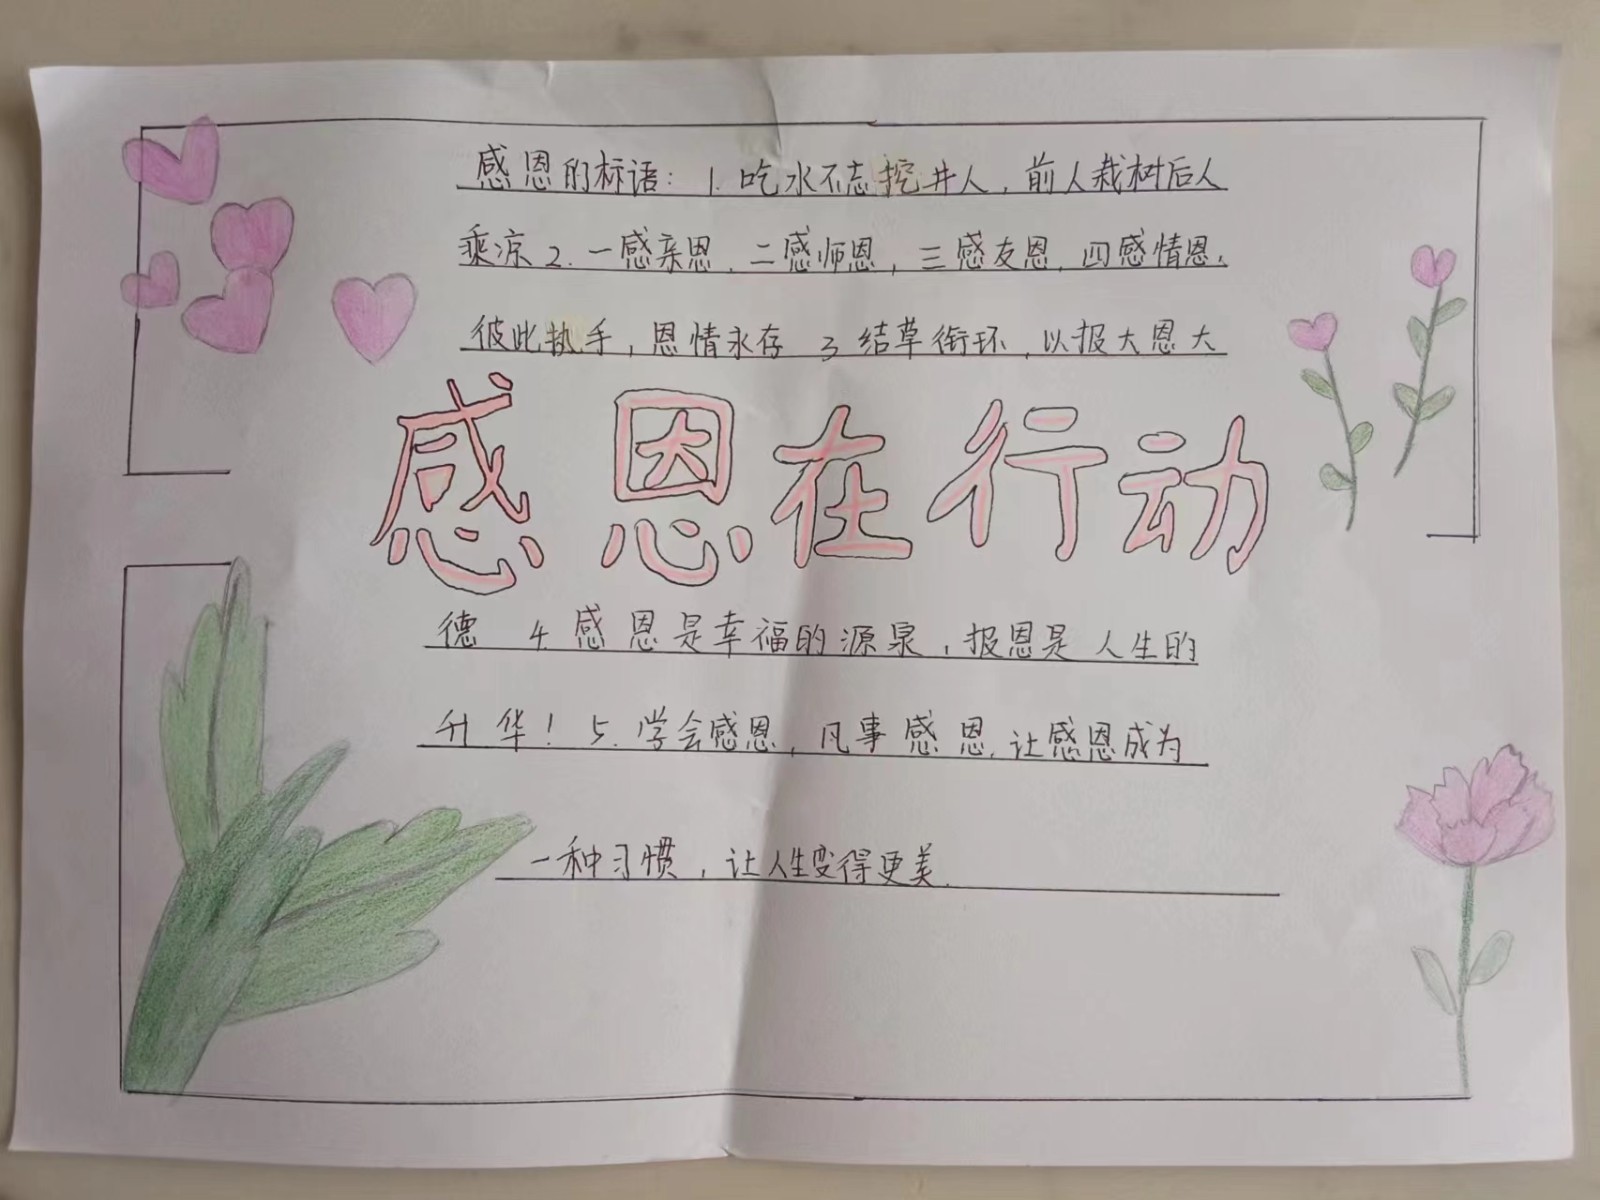 感恩的标语：1.吃水不忘挖井人，前人栽树后人
乘凉 2.一感亲恩，二感师恩，三感友恩，四感情恩，
彼此执手，恩情永存 3 结草衔环，以报大恩大
感恩在行动
德 4.感恩是幸福的源泉，报恩是人生的
升华！5.学会感恩，凡事感恩，让感恩成为
一种习惯，让人生变得更美.